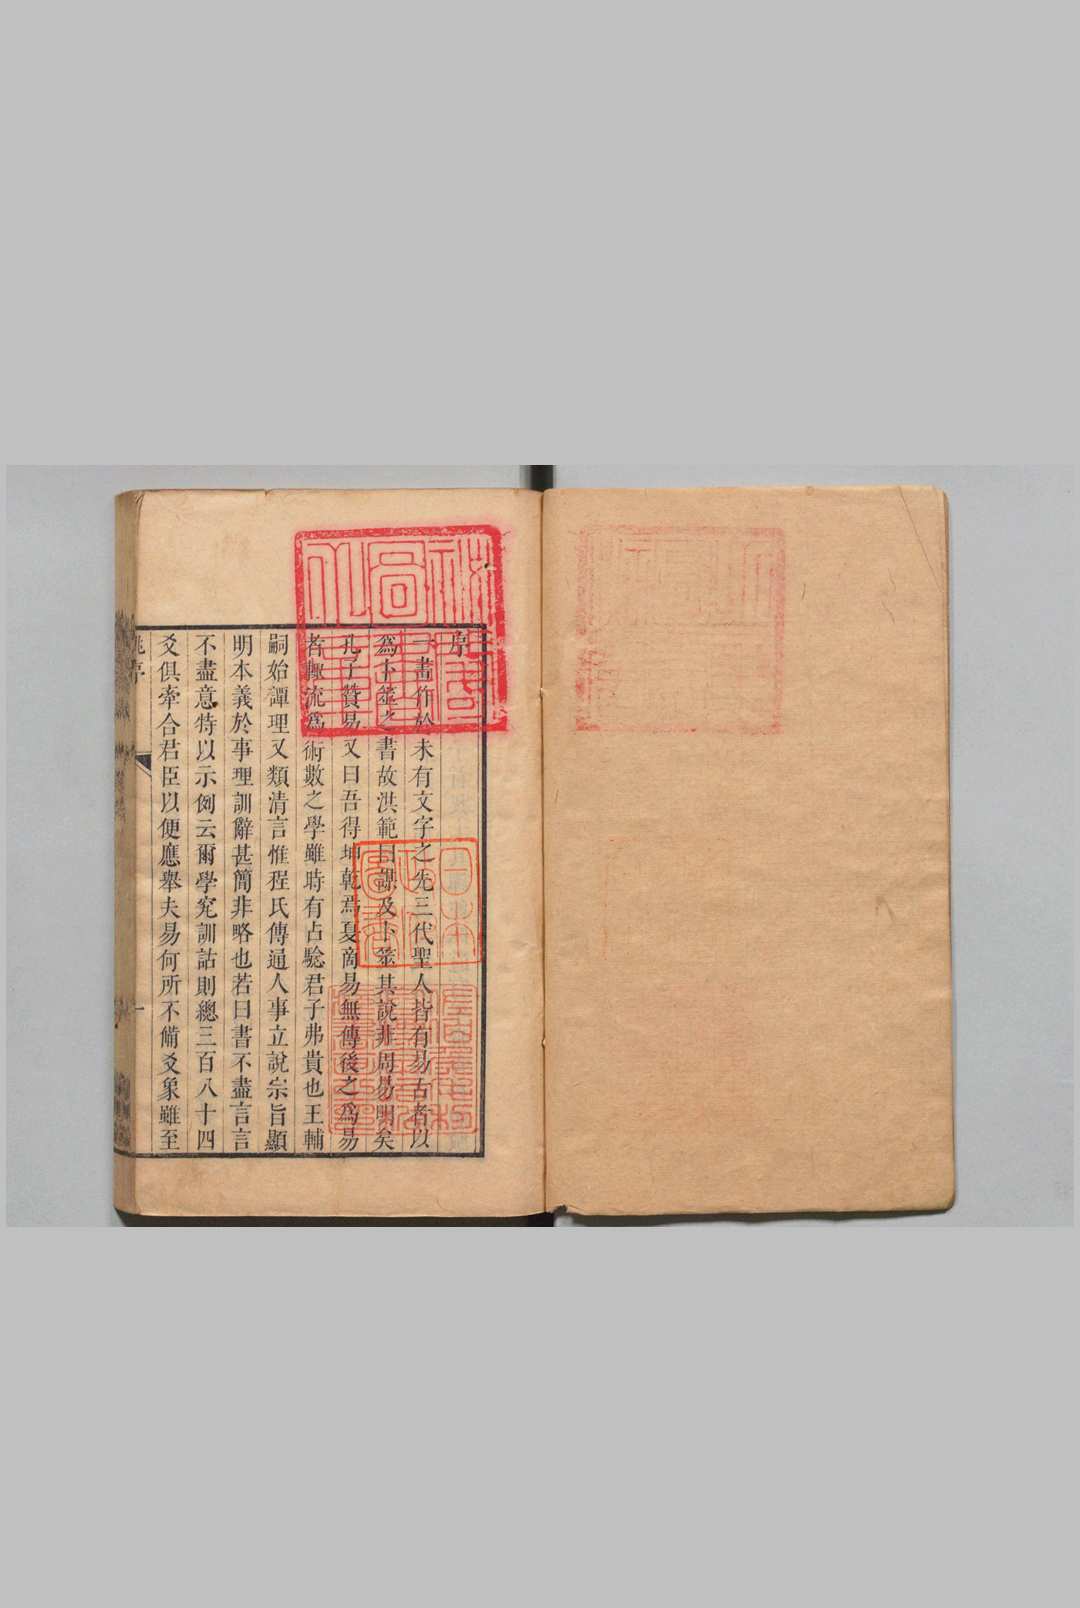 序
一畫作於未有文字之先三代聖人皆有易古者以
為卜筮之書故洪範曰謀及卜筮其說非周易明矣
孔子贊易又曰吾得坤乾焉夏商易無傳後之為易
者極流為術數之學雖時有占驗君子弗貴也王輔
嗣始譚理又類清言惟程氏傳通人事立說宗旨顯
明本義於事理訓辭甚簡非略也若曰書不盡言言
不盡意特以示例云爾學究訓詁則總三百八十四
爻俱牽合君臣以便應舉夫易何所不備爻象雖至
姚序
一